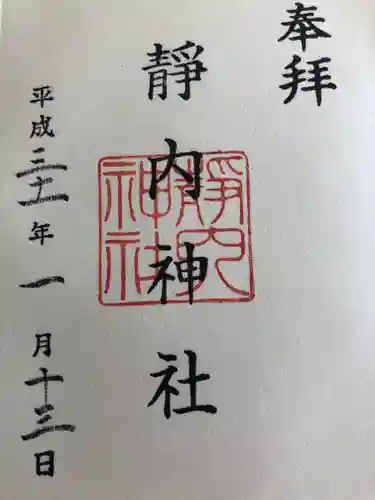 奉拝
靜内神社
靜内
神社
平成三十一年一月十三日